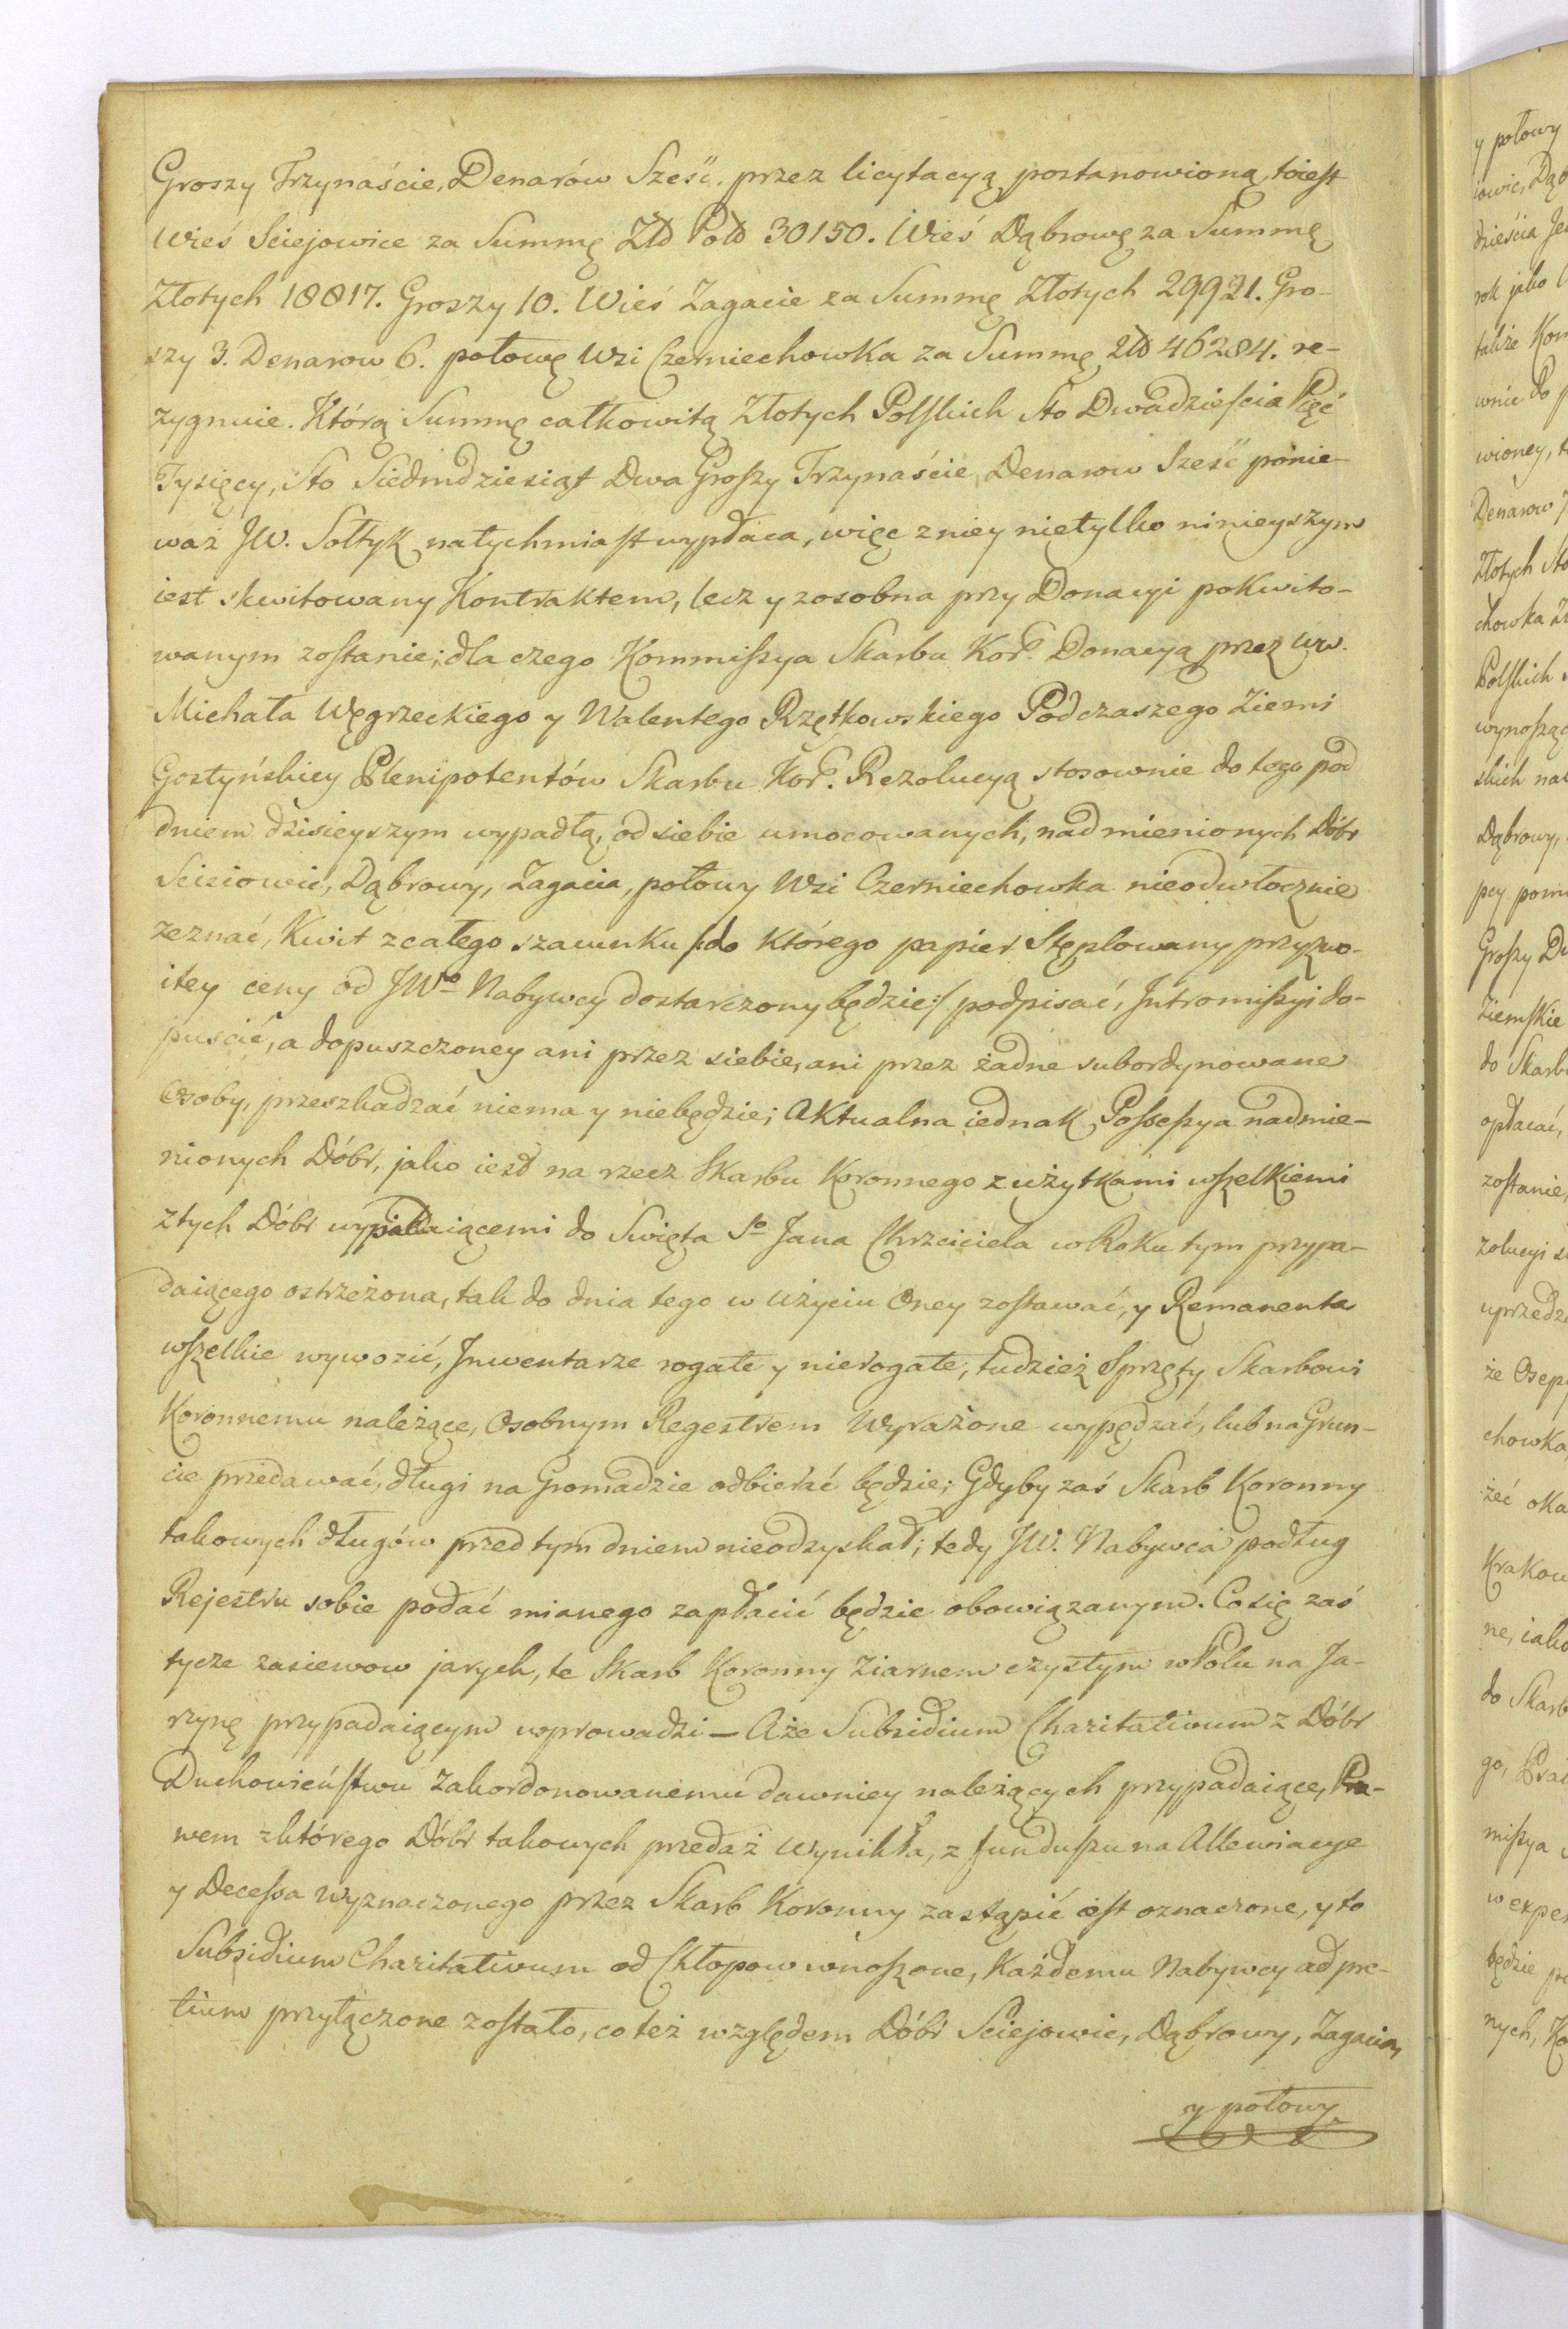 Groszy Trzynaście, Denarów Sześć. przez licytacyą postanowioną, toiest
Wieś Sciejowice za Summę Złd Pold 30150. Wieś Dąbrowę za Summę
Złotych 18817. Groszy 10. Wieś Zagacie za Summę Złotych 29921. Gro-
szy 3. Denarow 6. połowę Wsi Czerniechowka za Summę Złd 46284. re-
zygnuie. Którą Summę całkowitą Złotych Polskich Sto Dwadzieścia Pięć
Tysięcy, Sto Siedmdziesiąt Dwa Groszy Trzynaście, Denarow Sześć ponie-
waż JW. Sołtyk natychmiast wypłaca, więc z niey nietylko ninieyszym
iest skwitowany Kontraktem, lecz y zosobna przy Donacyi pokwito-
wanym zostanie; dla czego Kommissya Skarbu Kor. Donacyą przez Ww.
Michała Węgrzeckiego y Walentego Rzętkowskiego Podczaszego Ziemi
Gostyńskiey Plenipotentów Skarbu Kor. Rezolucyą stosownie do tego pod
dniem dzisieyszym wypadłą, od siebie umocowanych, nadmienionych Dóbr
Scieiowic, Dąbrowy, Zagacia, połowy Wsi Czerniechowka nieodwłocznie
zeznać, Kwit z całego szacunku /:do którego papier Stęplowany przyzwo-
itey ceny od JWo Nabywcy dostarczony będzie:/ podpisać, Intromissyi do-
puścić, a dopuszczoney ani przez siebie, ani przez żadne subordynowane
Osoby, przeszkadzać niema y niebędzie; Aktualna iednak Possessya nadmie-
nionych Dóbr, jako iest na rzecz Skarbu Koronnego z użytkami wszelkiemi
z tych Dóbr wypadaiącemi do Swięta So Jana Chrzciciela w Roku tym przypa-
daiącego ostrzeżona, tak do dnia tego w Użyciu Oney zostawać, y Remanenta
wszelkie wywozić, Inwentarze rogate y nierogate, tudzież Sprzęty Skarbowi
Koronnemu należące, Osobnym Regestrem Wyrażone wypędzać, lub na Grun-
cie przedawać, długi na Gromadzie odbierać będzie; Gdyby zaś Skarb Koronny
takowych długów przed tym dniem nieodzyskał; tedy JW. Nabywca podług
Rejestru sobie podać mianego zapłacić będzie obowiązanym. Co się zaś
tycze zasiewow jarych, te Skarb Koronny Ziarnem czystym w Polu na Ja-
rzynę przypadaiącym wprowadzi — Aże Subsidium Charitativum z Dóbr
Duchowieństwu Zakordonowanemu dawniey należących przypadaiące, Pra-
wem z którego Dóbr takowych przedaż wynikła, z funduszu na Allewiacye
y Decessa Wyznaczonego przez Skarb Koronny zastąpić iest oznaczone, y to
Subsidium Charitativum od Chłopow wnoszone, Każdemu Nabywcy ad pre-
tium przyłączone zostało, co też względem Dóbr Sciejowic, Dąbrowy, Zagacia,
y połowy
y połowy
dzieścia Je
rok jako
talże Kom
wnie do
wioney,
Denarow
Złotych Sto
chowka
Polskich
wynoszą
skich na
Dąbrowy,
pcy pom
Groszy D
Ziemskie
do Skarb
opłacać,
zostanie,
zolucyi s
uprzedz
że Osep
chowka,
żeć oka
Krakow
ne, iako
do Skarb
go, Pra
missya
w expe
będzie
nych, Ko